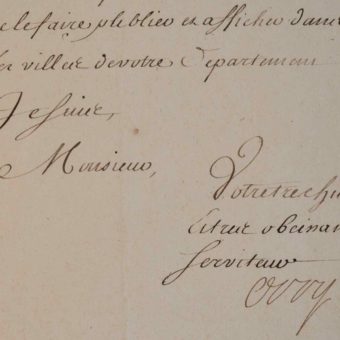 le faire publier et afficher dans
les villes de votre Departement
Je suis,
Monsieur,
Votre tres hu
et tres obeissan
Serviteur
Orry